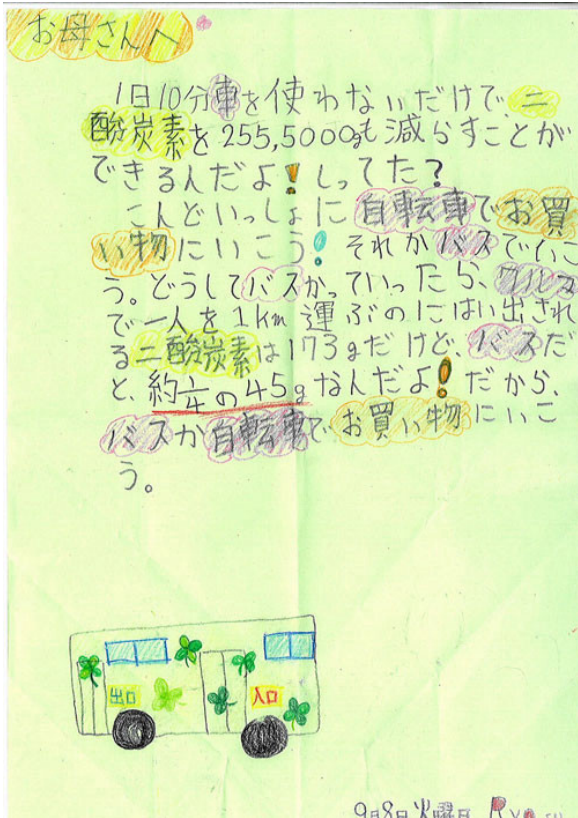 お母さんへ
1日10分車を使わないだけで、二
酸炭素を255,5000gも減らすことが
できるんだよ!しってた?
こんどいっしょに自転車でお買
い物にいこう!それかバスでいこ
う。どうしてバスかっていったら、クルマ
で一人を1km運ぶのにはい出され
る二酸炭素は173gだけど、バスだ
と、約1/4の45gなんだよ!だから、
バスか自転車で、お買い物にいこ
う。
出口 入口
9月8日火曜日